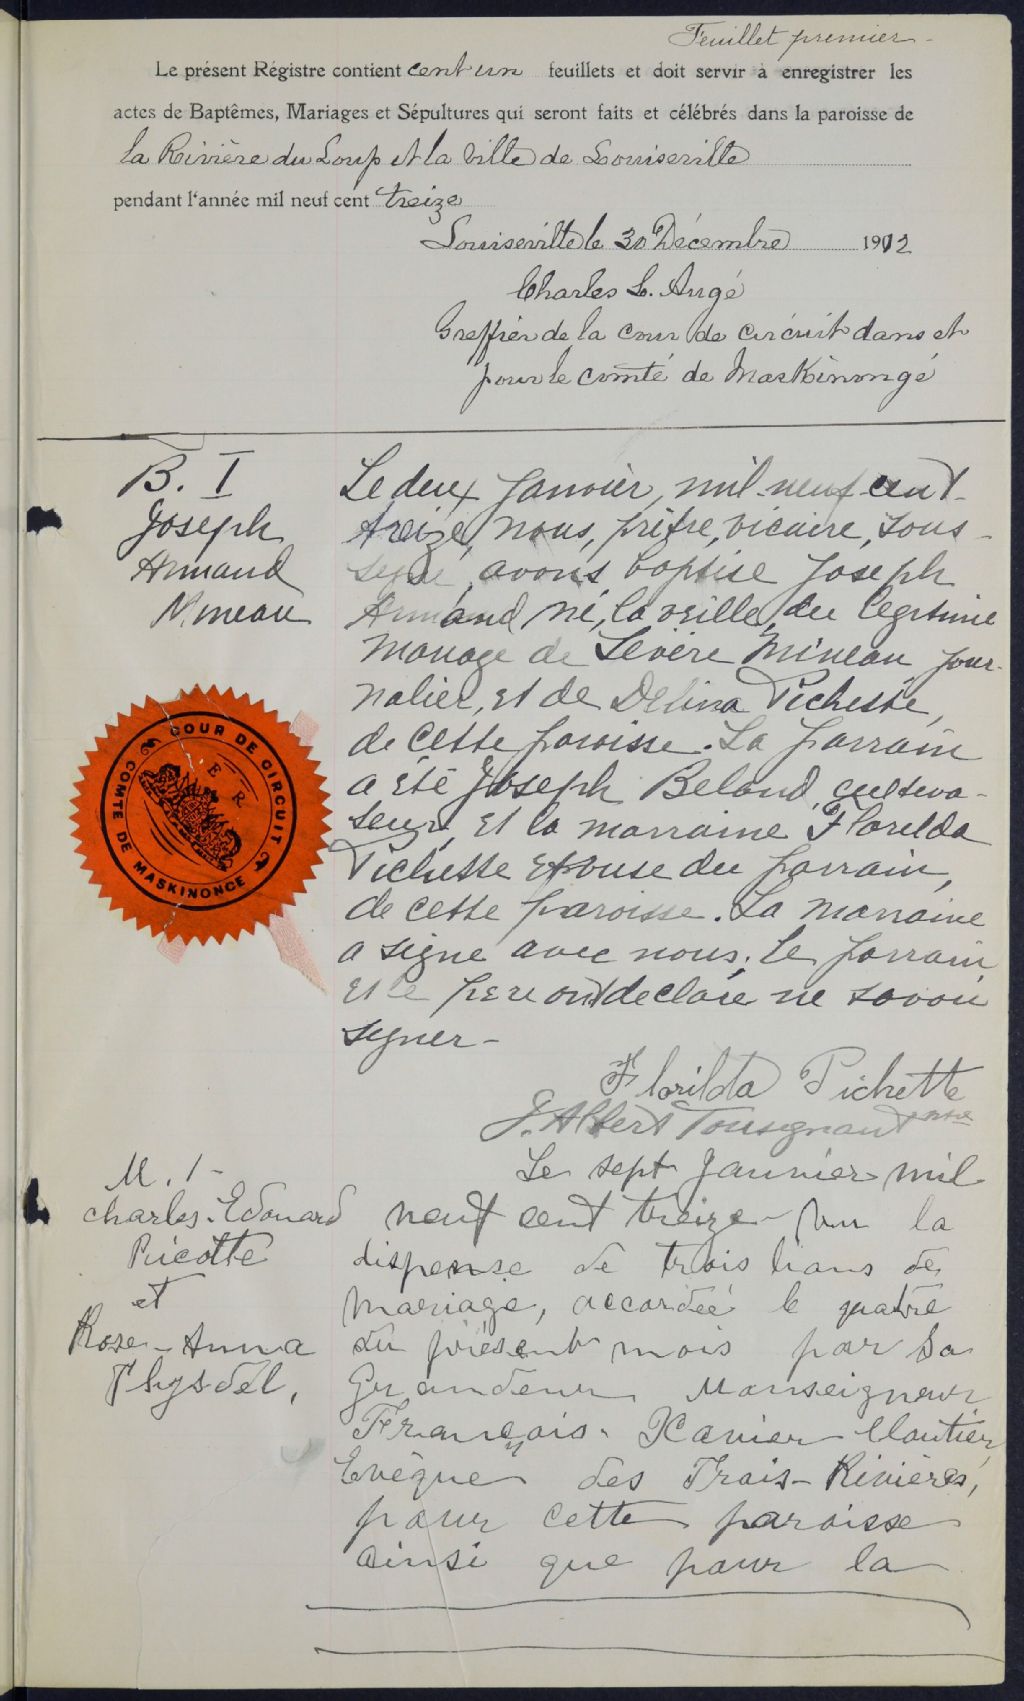 Feuillet premier -
Le présent Régistre contient cent un feuillets et doit servir à enregistrer les
actes de Baptêmes, Mariages et Sépultures qui seront faits et célébrés dans la paroisse de
la Rivière du Loup et la ville de Louiseville
pendant l'année mil neuf cent treize
Louiseville le 30 Décembre 1912
Charles L. Augé
Greffier de la cour de circuit dans et
pour le comté de Maskinongé
B. I
Joseph
Armand
Mineau
Le deux Janvier, mil-neuf-cent-
treize, nous, prêtre, vicaire, sous-
signé, avons baptisé Joseph
Armand né, la veille, du légitime
mariage de Sévère Mineau jour-
nalier, et de Delina Pichette,
de cette paroisse. Le parrain
a été Joseph Beland, cultiva-
teur, et la marraine Florilda
Pichette épouse du parrain,
de cette paroisse. La marraine
a signé avec nous. Le parrain
et le père ont déclaré ne savoir
signer -
Florilda Pichette
J. Albert Tousignant ptre
COUR DE CIRCUIT
E R
COMTE DE MASKINONGE
M. 1-
Charles-Edouard
Pricotte
et
Rose-Anna
Thysdel,
Le sept Janvier mil
neuf cent treize - vu la
dispense de trois bans de
mariage, accordée le quatre
du présent mois par Sa
Grandeur Monseigneur
François-Xavier Cloutier,
Evêque des Trois-Rivières,
pour cette paroisse
ainsi que pour la